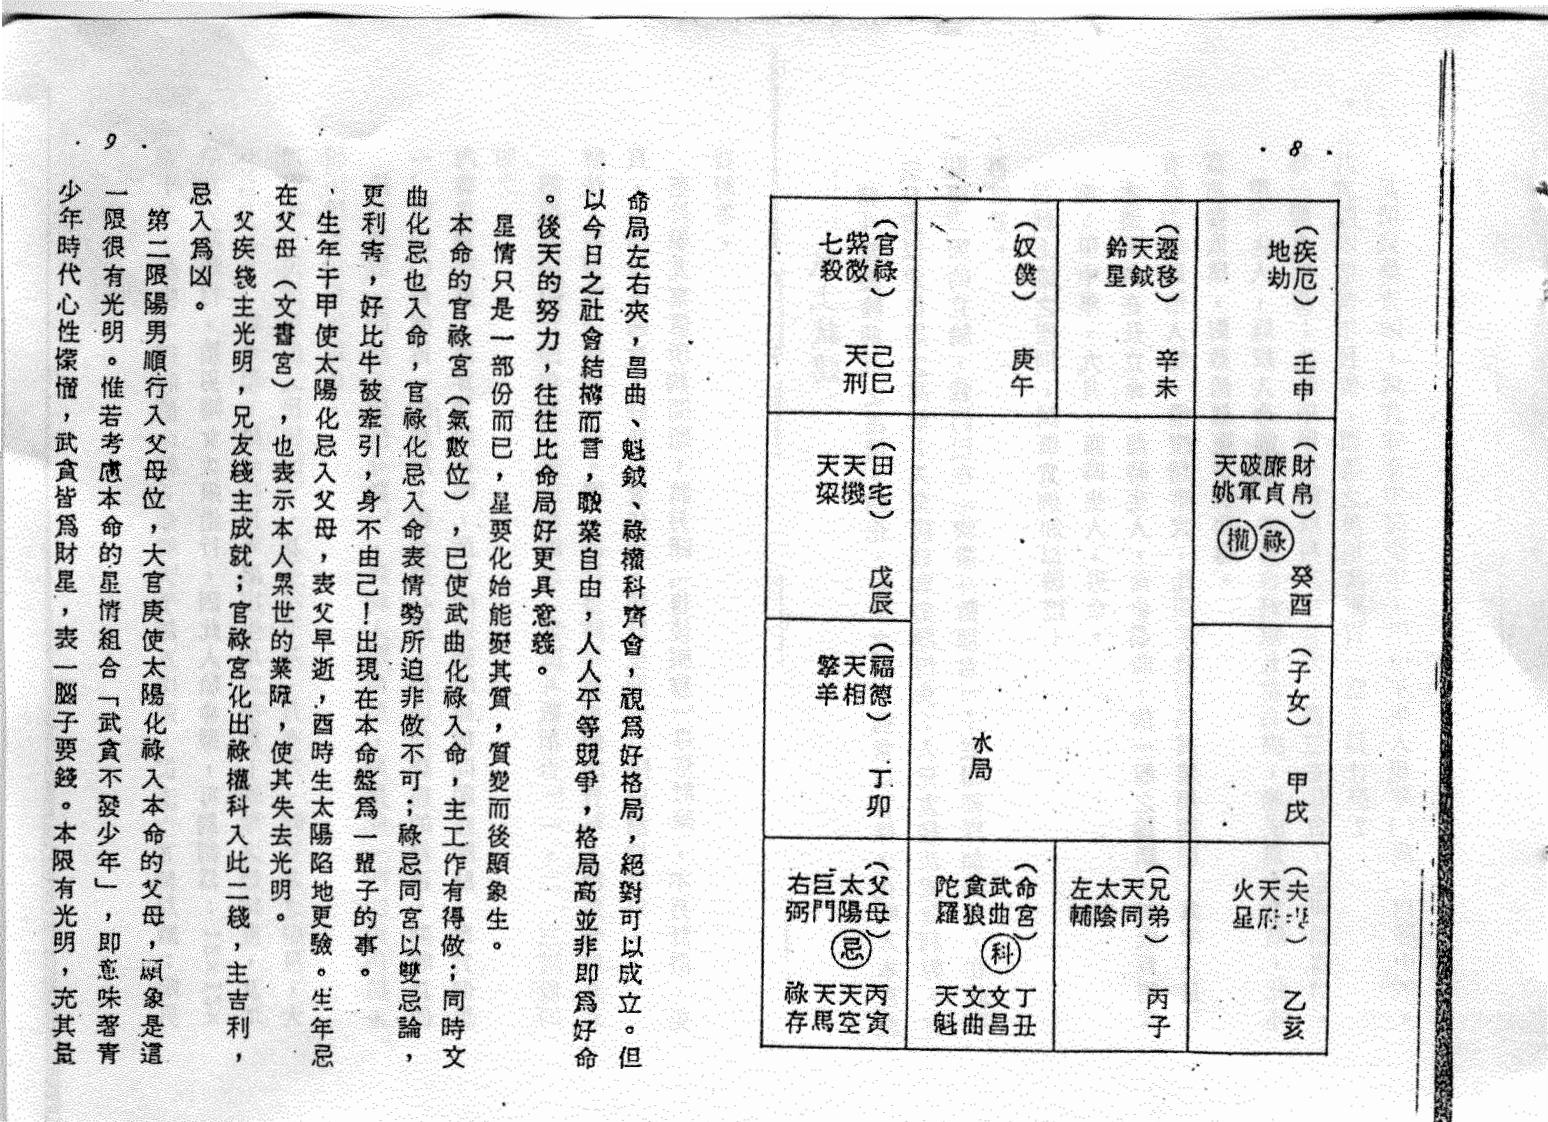 · 8 ·
(疾厄)
地劫
壬申
(遷移)
天鉞
鈴星
辛未
(奴僕)
庚午
(官祿)
紫微
七殺
己巳
天刑
(財帛)
廉貞 祿
破軍 權
天姚
癸酉
(田宅)
天機
天梁
戊辰
(子女)
甲戌
(福德)
天相
擎羊
丁卯
水局
(夫妻)
天府
火星
乙亥
(兄弟)
天同
太陰
左輔
丙子
(命宮)
武曲 科
貪狼
陀羅
丁丑
文昌
文曲
天魁
(父母)
太陽 忌
巨門
右弼
丙寅
天空
天馬
祿存
· 9 ·
命局左右夾，昌曲、魁鉞、祿權科齊會，視爲好格局，絕對可以成立。但
以今日之社會結構而言，職業自由，人人平等競爭，格局高並非即爲好命
。後天的努力，往往比命局好更具意義。
星情只是一部份而已，星要化始能變其質，質變而後顯象生。
本命的官祿宮（氣數位），已使武曲化祿入命，主工作有得做；同時文
曲化忌也入命，官祿化忌入命表情勢所迫非做不可；祿忌同宮以雙忌論，
更利害，好比牛被牽引，身不由己！出現在本命盤爲一輩子的事。
生年干甲使太陽化忌入父母，表父早逝，酉時生太陽陷地更驗。生年忌
在父母（文書宮），也表示本人累世的業障，使其失去光明。
父疾綫主光明，兄友綫主成就；官祿宮化出祿權科入此二綫，主吉利，
忌入爲凶。
第二限陽男順行入父母位，大官庚使太陽化祿入本命的父母，顯象是這
一限很有光明。惟若考慮本命的星情組合「武貪不發少年」，即意味著青
少年時代心性懞懂，武貪皆爲財星，表一腦子要錢。本限有光明，充其量